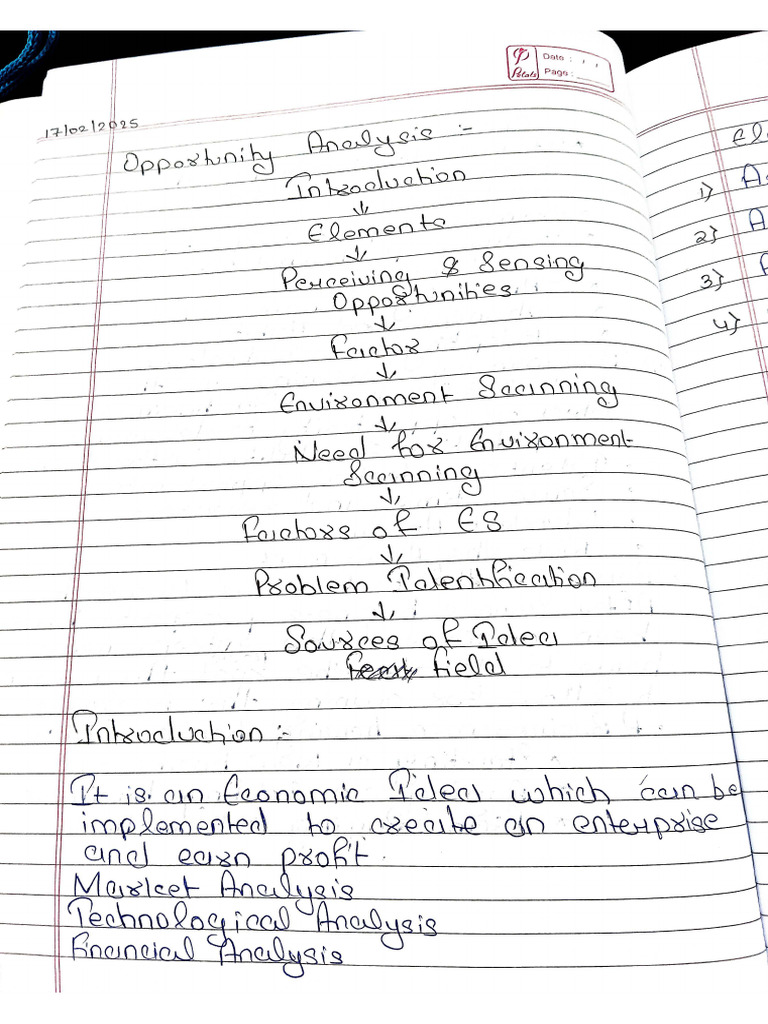 Date :
Page :
17/02/2025
Opportunity Analysis :-
Introduction
↓
Elements
↓
Perceiving & Sensing
Opportunities
↓
Factor
↓
Environment Scanning
↓
Need for Environment
Scanning
↓
Factors of ES
↓
Problem Identification
↓
Sources of Idea
field
Introduction :-
It is an Economic Idea which can be
implemented to create an enterprise
and earn profit.
Market Analysis
Technological Analysis
Financial Analysis
1)
2)
3)
4)